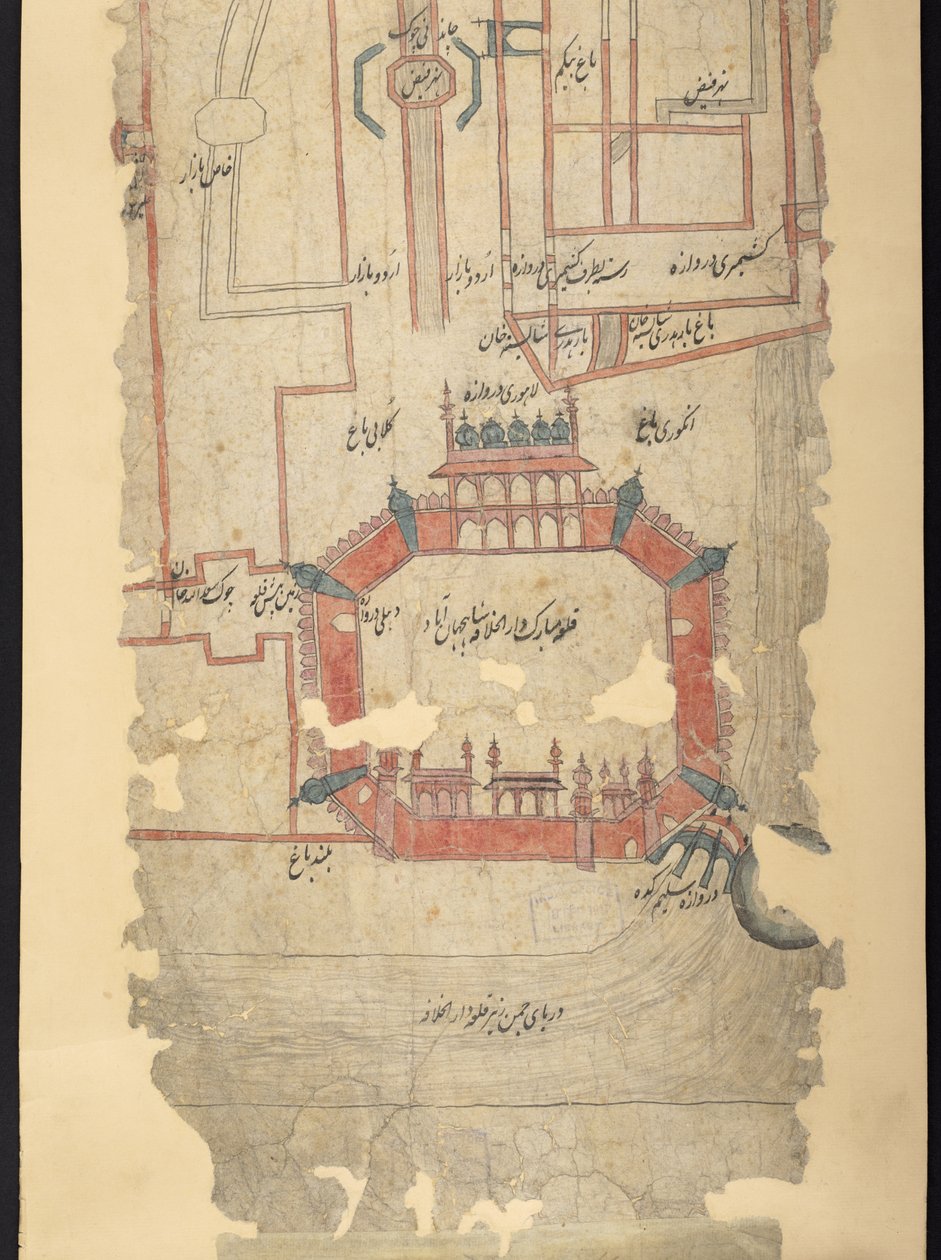 چاندنی چوک
نهر فیض
باغ بیگم
نهر فیض
خاص بازار
اردو بازار
اردو بازار
رسته بطرف کشمیری دروازه
کشمیری دروازه
بارهدری شایسته خان
باغ بارهدری شایسته خان
لاهوری دروازه
گلابی باغ
انگوری باغ
چوک سعد الله خان
زمین پیش قلعه
دهلی دروازه
قلعه مبارک دار الخلافه شاهجهان آباد
بلند باغ
دروازه سلیم گده
دریای جمن زیر قلعه دار الخلافه